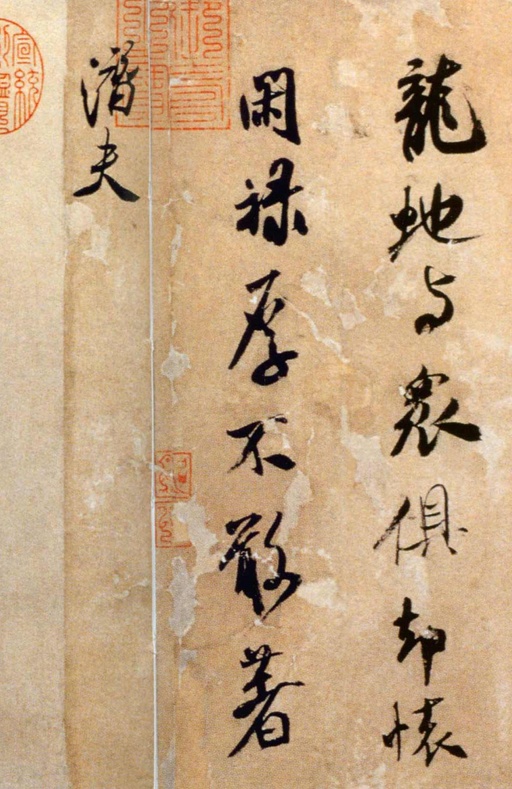 龍虵与衆俱却懷
閑禄厚不敢著
潛夫